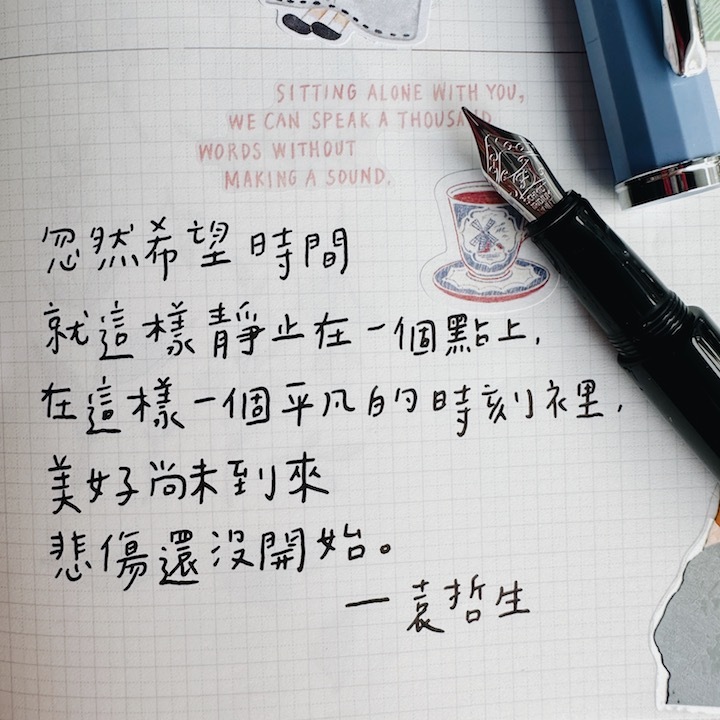 SITTING ALONE WITH YOU,
WE CAN SPEAK A THOUSAND
WORDS WITHOUT
MAKING A SOUND.
忽然希望時間
就這樣靜止在一個點上,
在這樣一個平凡的時刻裡,
美好尚未到來
悲傷還沒開始。
—袁哲生